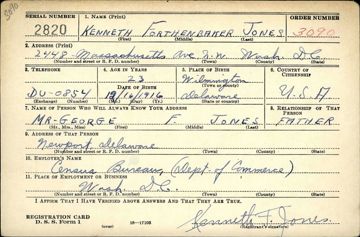 3090
SERIAL NUMBER 1. NAME (Print) ORDER NUMBER
2820 KENNETH FORTHENBAKER JONES 3090
(First) (Middle) (Last)
2. ADDRESS (Print)
2448 Massachusetts Ave N.W. Wash D.C.
(Number and street or R. F. D. number) (Town) (County) (State)
3. TELEPHONE 4. AGE IN YEARS 5. PLACE OF BIRTH 6. COUNTRY OF CITIZENSHIP
23 Wilmington
DATE OF BIRTH (Town or county)
DU-0854 1916 Delaware U.S.A
(Exchange) (Number) (Mo.) (Day) (Yr.) (State or country)
7. NAME OF PERSON WHO WILL ALWAYS KNOW YOUR ADDRESS 8. RELATIONSHIP OF THAT PERSON
MR-GEORGE F. JONES FATHER
(Mr., Mrs., Miss) (First) (Middle) (Last)
9. ADDRESS OF THAT PERSON
Newport, Delaware
(Number and street or R. F. D. number) (Town) (County) (State)
10. EMPLOYER'S NAME
Census Bureau, (Dept. of Commerce)
11. PLACE OF EMPLOYMENT OR BUSINESS
Wash D.C.
(Number and street or R. F. D. number) (Town) (County) (State)
I AFFIRM THAT I HAVE VERIFIED ABOVE ANSWERS AND THAT THEY ARE TRUE.
REGISTRATION CARD
D. S. S. Form 1 16-17105 Kenneth F. Jones
(over) (Registrant's signature)